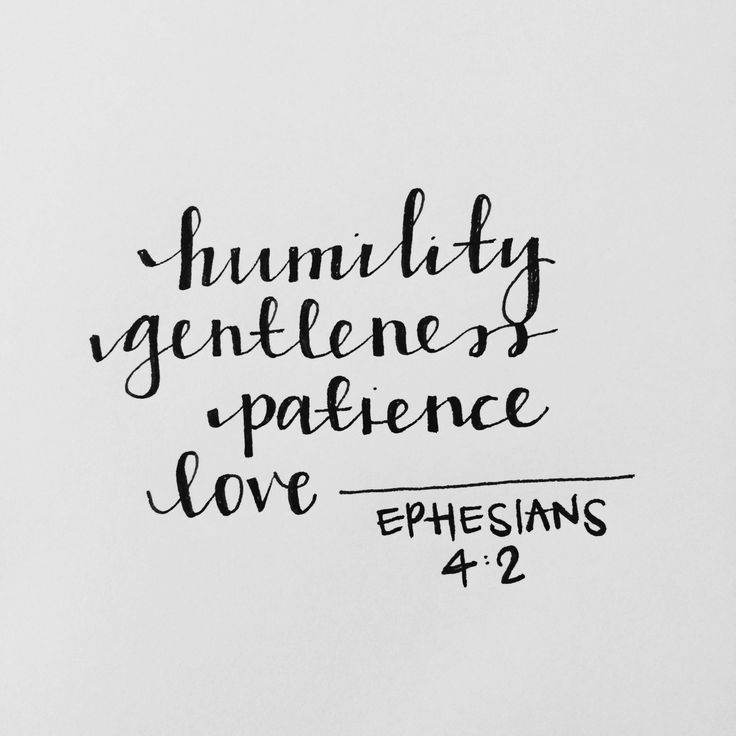 humility
gentleness
patience
love
EPHESIANS
4:2